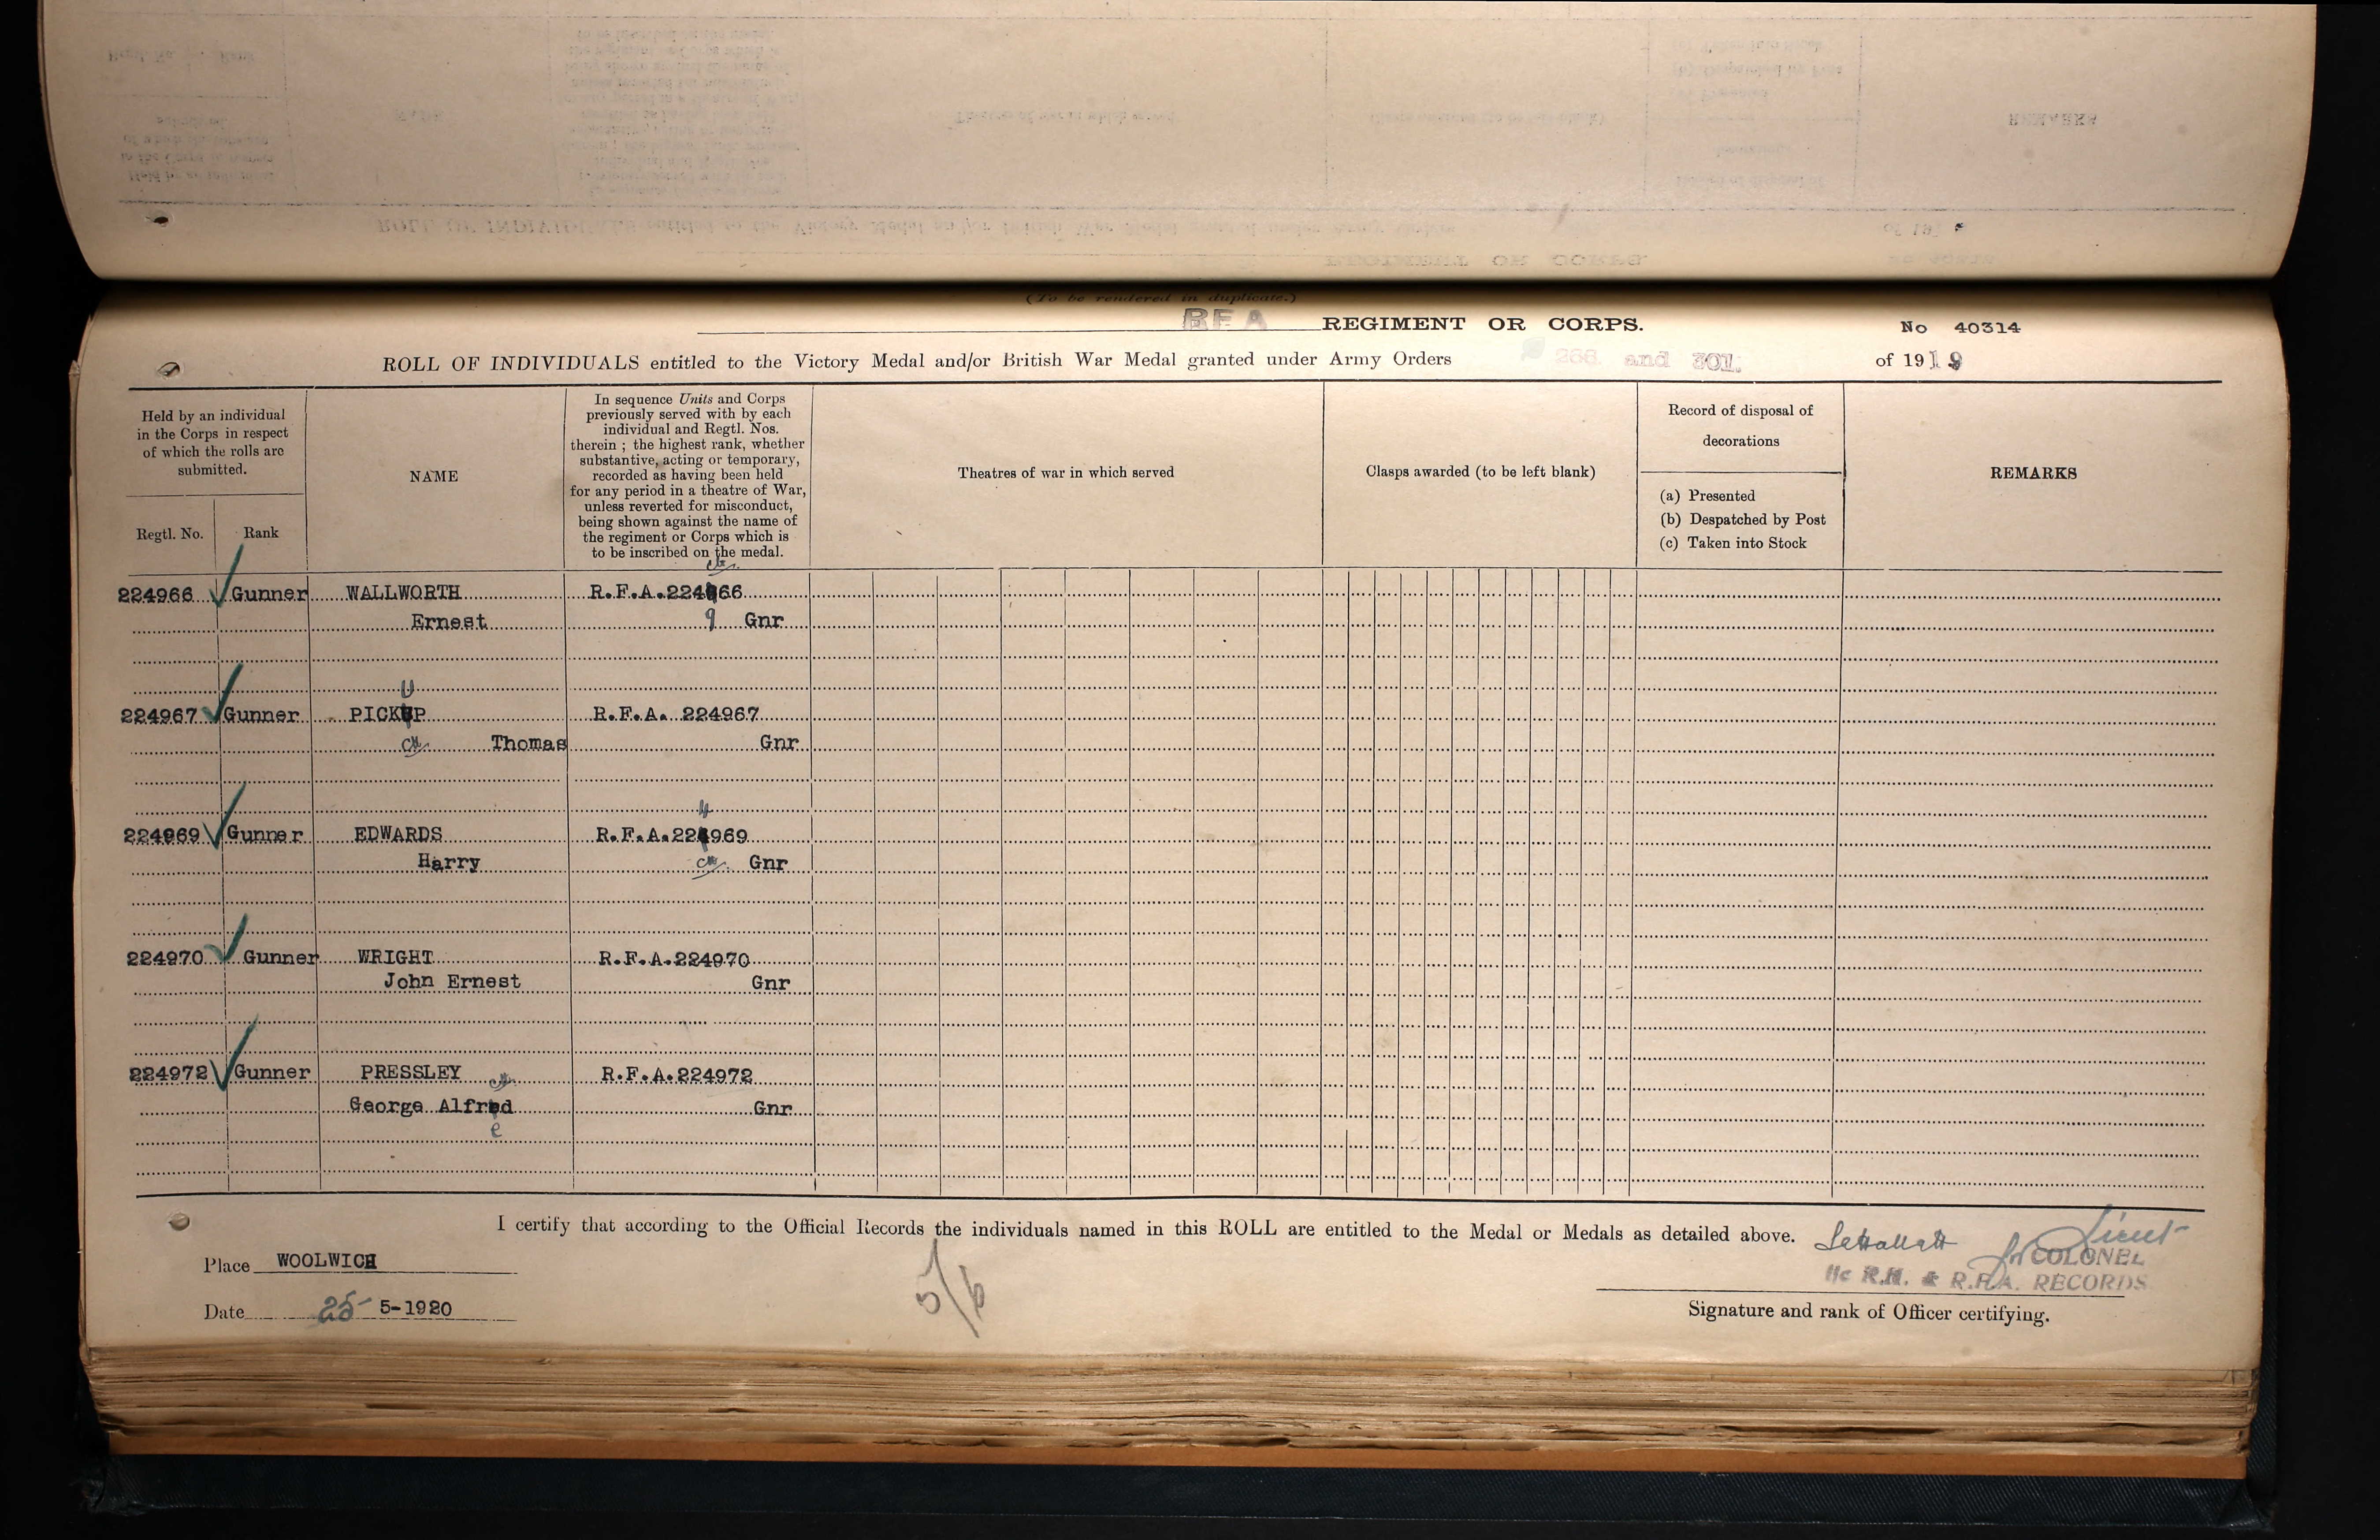 (To be rendered in duplicate.)
RFA REGIMENT OR CORPS. No 40314
ROLL OF INDIVIDUALS entitled to the Victory Medal and/or British War Medal granted under Army Orders 266 and 301. of 1919
Held by an individual
in the Corps in respect
of which the rolls are
submitted.
Regtl. No. Rank
NAME
In sequence Units and Corps
previously served with by each
individual and Regtl. Nos.
therein ; the highest rank, whether
substantive, acting or temporary,
recorded as having been held
for any period in a theatre of War,
unless reverted for misconduct,
being shown against the name of
the regiment or Corps which is
to be inscribed on the medal.
Theatres of war in which served
Clasps awarded (to be left blank)
Record of disposal of
decorations
(a) Presented
(b) Despatched by Post
(c) Taken into Stock
REMARKS
224966 Gunner WALLWORTH R.F.A.224966
Ernest 9 Gnr
U
224967 Gunner PICKUP R.F.A. 224967
Thomas Gnr
4
224969 Gunner EDWARDS R.F.A.224969
Harry Gnr
224970 Gunner WRIGHT R.F.A.224970
John Ernest Gnr
224972 Gunner PRESSLEY R.F.A.224972
George Alfred Gnr
e
I certify that according to the Official Records the individuals named in this ROLL are entitled to the Medal or Medals as detailed above.
Lieut
Place WOOLWICH
for COLONEL
I/c R.H. & R.F.A. RECORDS
Date 25-5-1920
5/6
Signature and rank of Officer certifying.